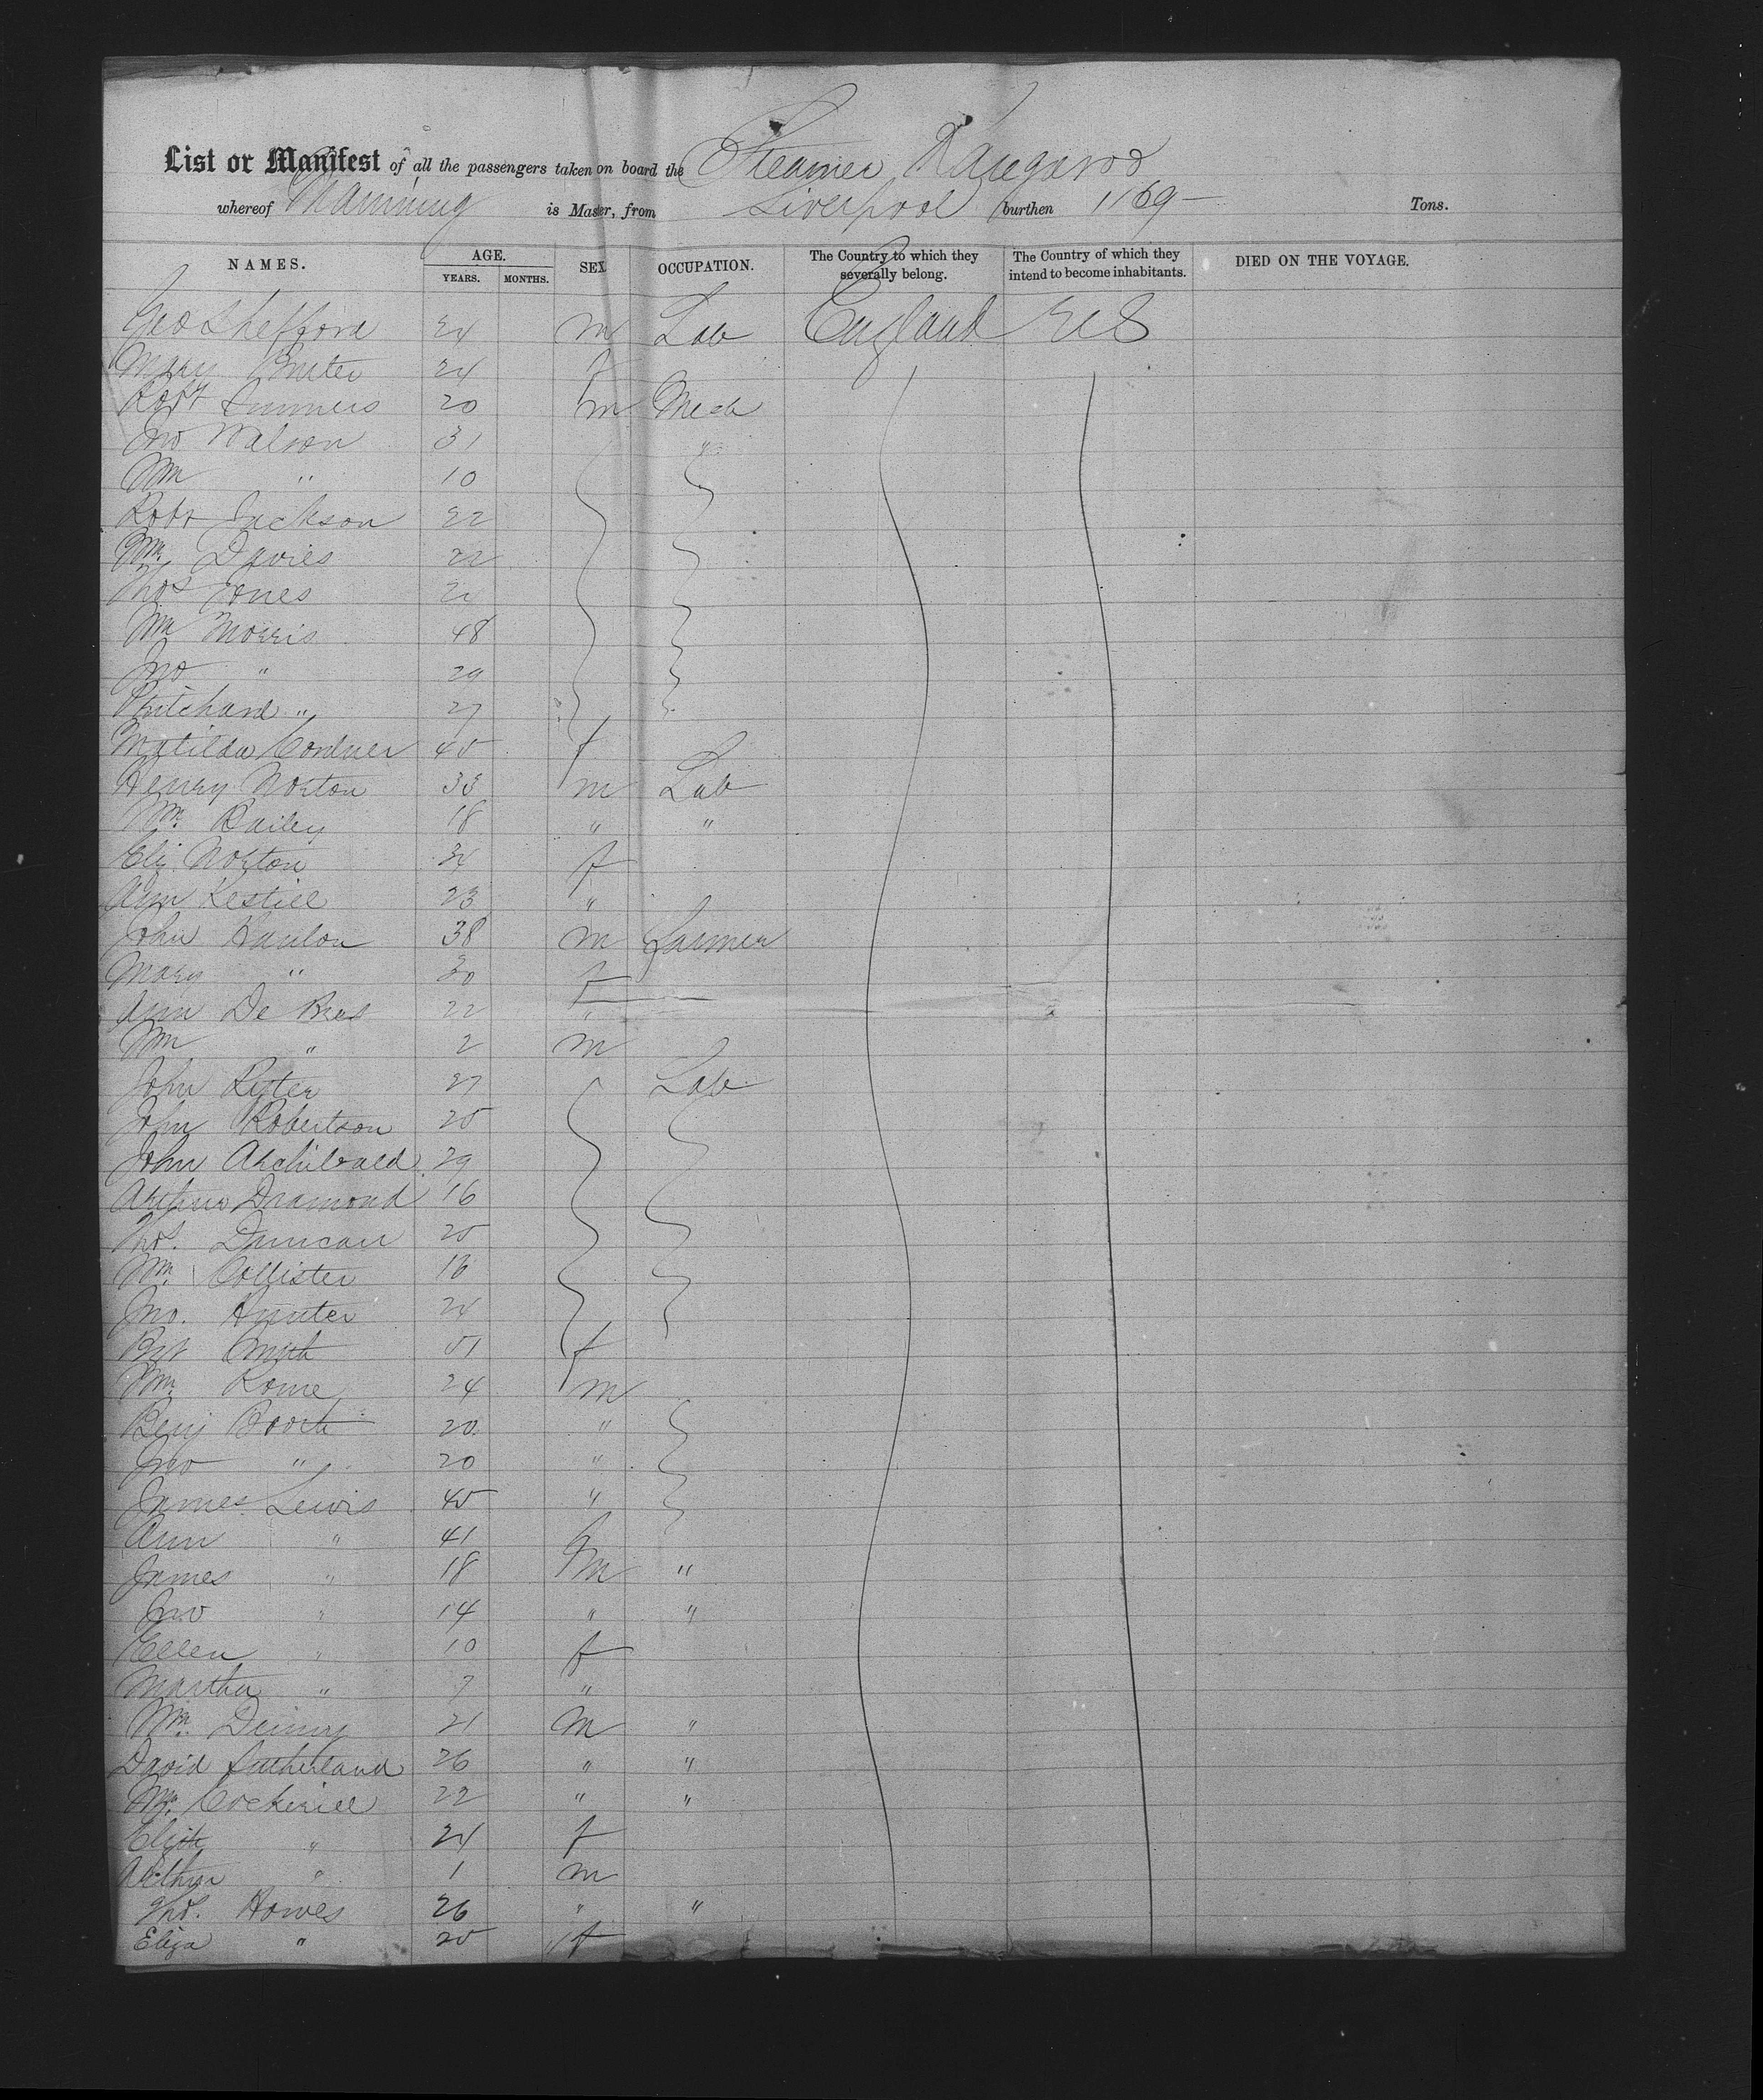 List or Manifest of all the passengers taken on board the Steamer Kangaroo
whereof Manning is Master, from Liverpool burthen 1169 – Tons.
NAMES. AGE. YEARS. MONTHS. SEX OCCUPATION. The Country to which they severally belong. The Country of which they intend to become inhabitants. DIED ON THE VOYAGE.
Geo Shefford 24 m Lab England U S
Mary 24 f
Robt Summers 20 m Mech
Jno Walson 31 "
Wm " 10
Robt Jackson 22
Wm Davies 22
Thos Jones 24
Wm Morris 48
Jno " 29
Pritchard " 27
Matilda Cordner 45 f
Henry Norton 33 m Lab
Wm Bailey 18 " "
Eliz Norton 34 f
Ann 23 "
John Hanlon 38 m Farmer
Mary " 30 f
Ann De 22 "
Wm " 2 m
John 27 Lab
John Robertson 25
John Archibald 29
Dramond 16
Thos. Duncan 25
Wm Collister 16
Jno. Hunter 24
Smith 51 f
Wm Rome 24 m
Benj Booth 20 "
Jno " 20 "
James Lewis 45 "
Ann " 41
James " 18 m "
Jno " 14 " "
Ellen " 10 f
Martha " 7 "
Wm 21 m "
David Sutherland 26 " "
Wm. Cockerill 22 " "
" 24 f
Arthur " 1 m
Thos. Howes 26 " "
Eliza " 25 f